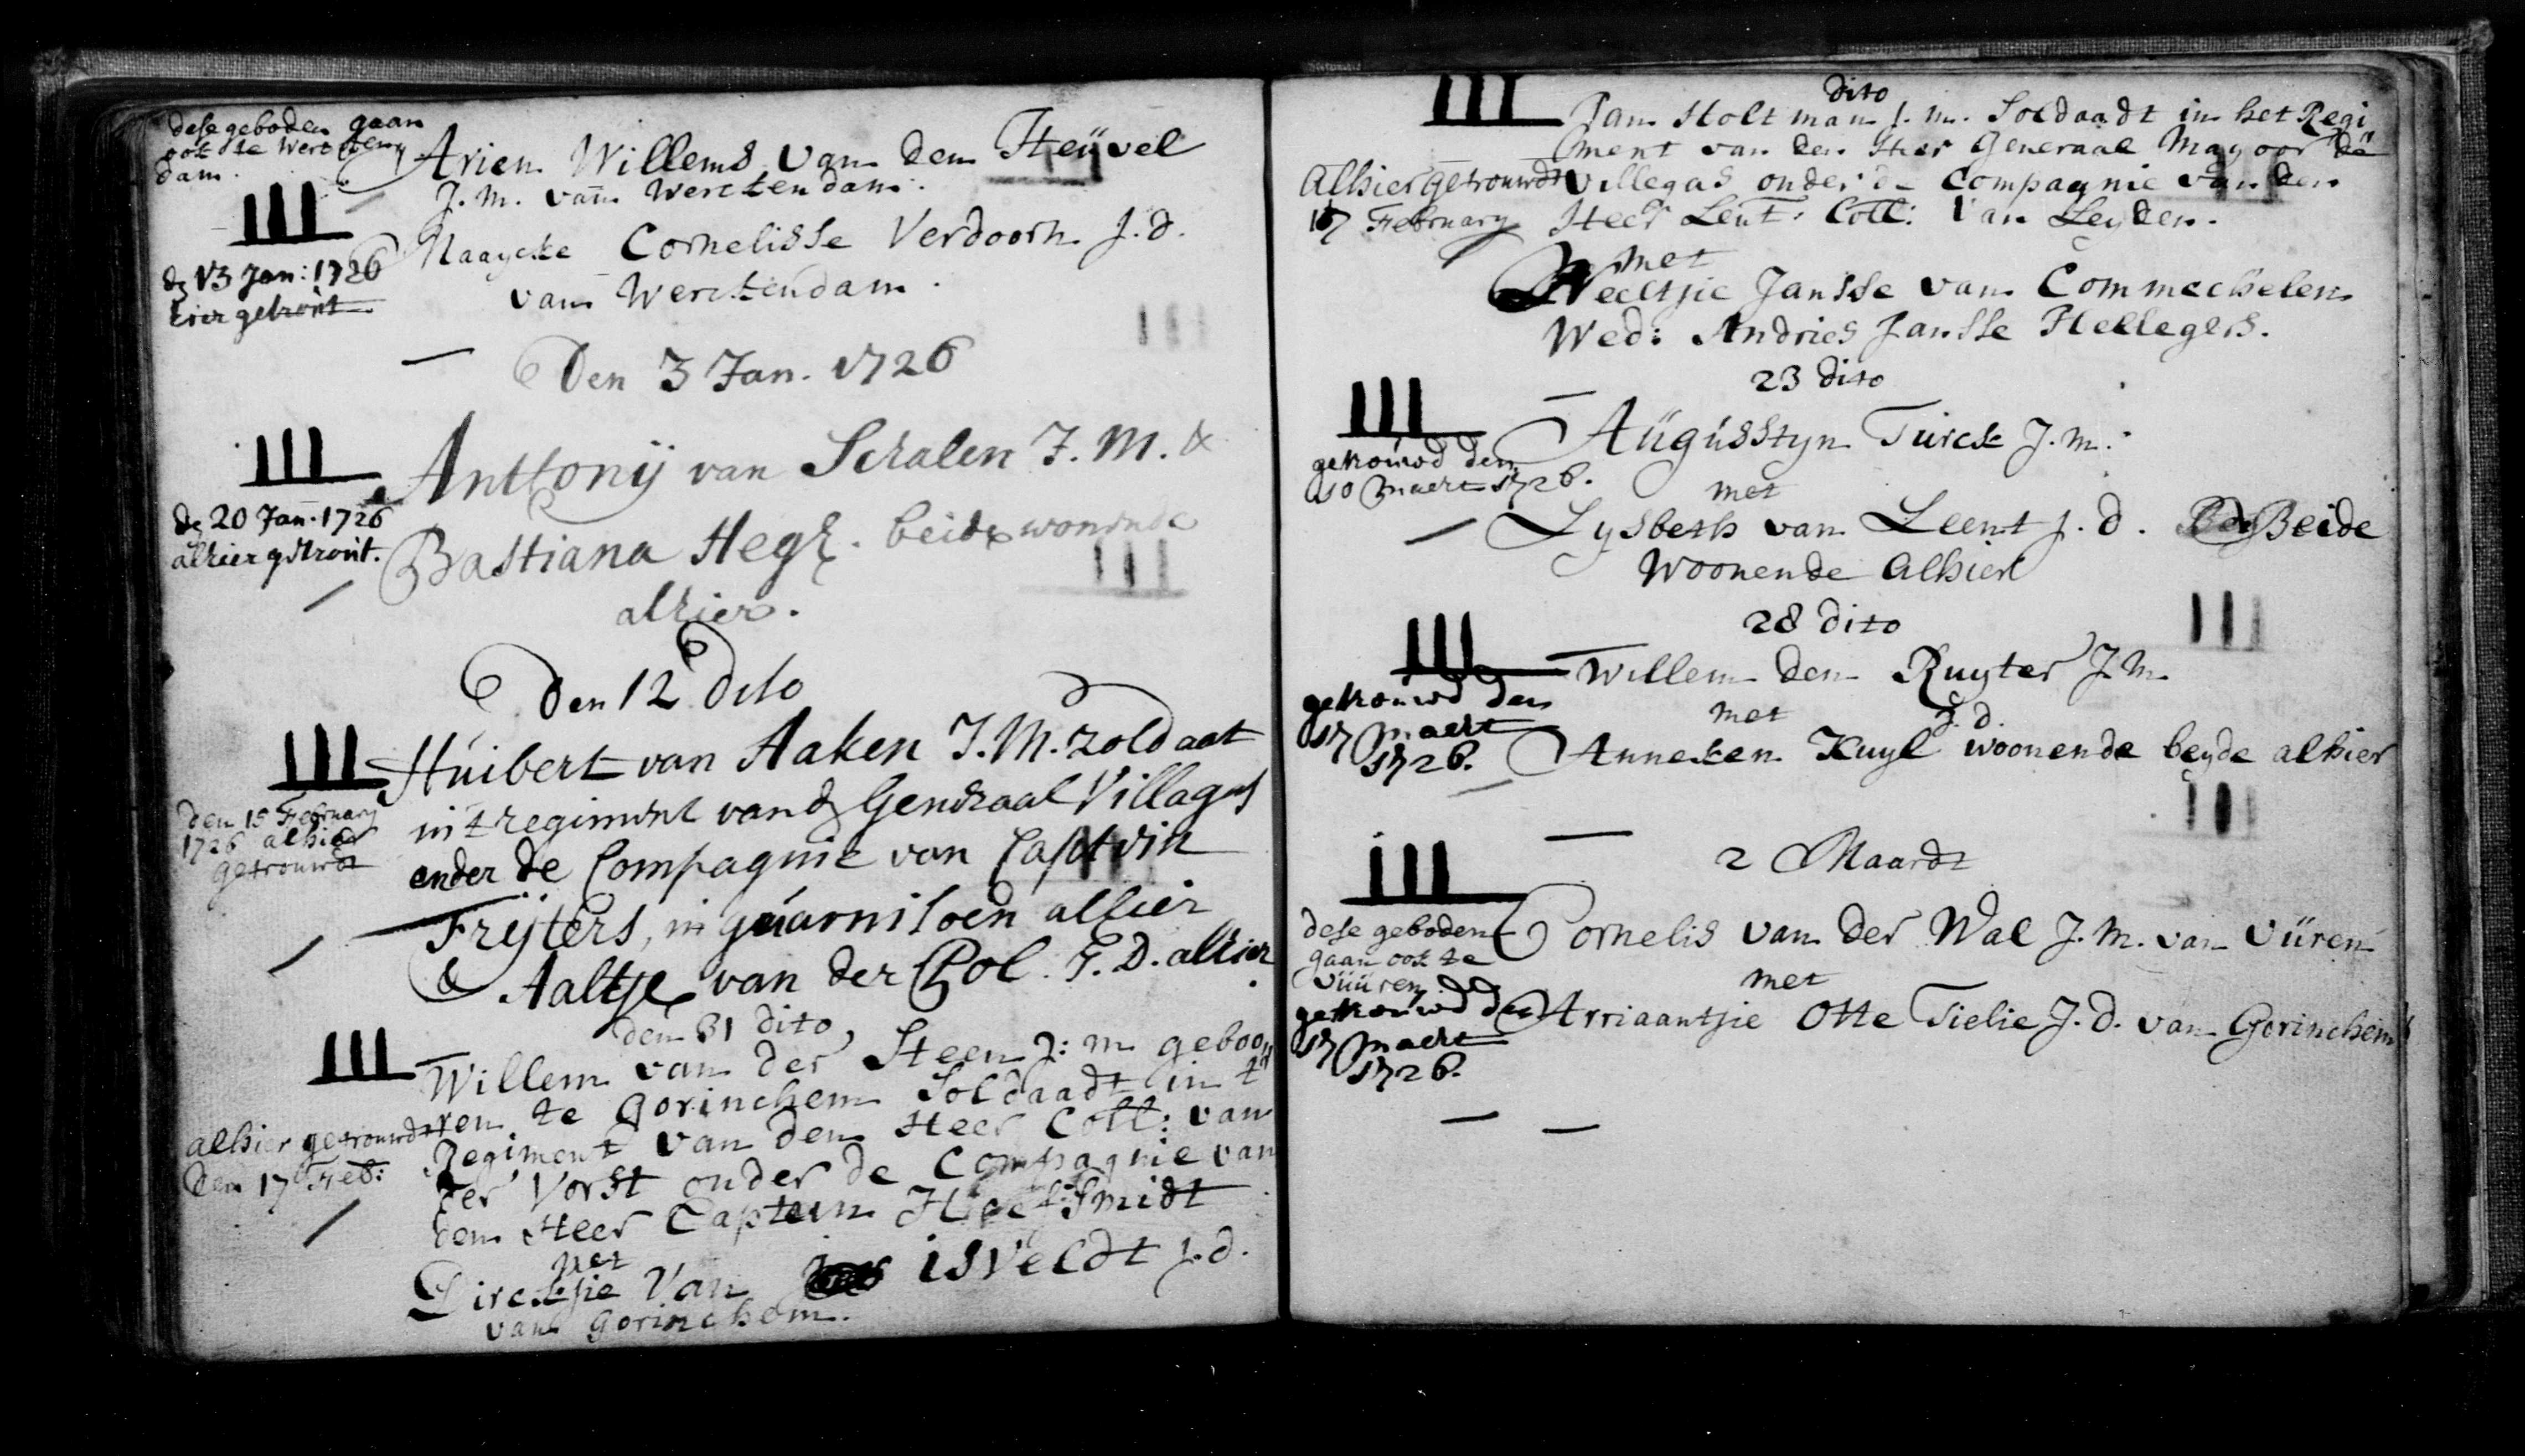 dese geboden gaan
ook te Werckendam
dam.
Arien Willems van den Heüvel
J. M. van Werckendam.
Maaycke Cornelisse Verdoorn J. d.
van Werckendam.
de 13 Jan: 1726
hier getrout
Den 3 Jan. 1726
Anthonÿ van Schalen J. M. &
Bastiana Hegh. beide wonende
alhier.
de 20 Jan. 1726
alhier getrout.
Den 12 dito
Huibert van Aaken J. M. zoldaat
in 't regiment vand Generaal Villagas
onder de Compagnie van Captein
Frijters, in guarnisoen alhier
& Aaltje van der Pol. J. D. alhier
den 15 February
1726 alhier
getrouwdt
den 31 dito
Willem van der Steen J: m geboo
ren te Gorinchem Soldaadt in 't
Regiment van den Heer Coll: van
der Vorst onder de Compagnie van
den Heer Captein Smidt
met
Dirckjie Van isveldt J. d.
van Gorinchem.
alhier getrouwdt
den 17 Feb:
dito
Jan Holtman J. m. Soldaadt in het Regi
ment van den Heer Generaal Mayoor de
Villegas onder de Compagnie van den
Heer Leut: Coll: Van Leyden.
met
Neeltjie Jansse van Commechelen
Wed: Andries Jansse Hellegers.
Alhier getrouwdt
17 February
23 dito
Aügüsstyn Turck J. m.
met
Lysbeth van Leent J. d. Beide
Woonende Alhier
getrouwd den
10 maert 1726.
28 dito
Willem den Ruyter J. M
met J. d.
Anneken Kuyl woonende beyde alhier
getrouwd den
17 maert
1726.
2 Maardt
Cornelis van der Wal J. M. van Vüren
met
Arriaantjie Otte Tielie J. D. van Gorinchem
dese geboden
gaan ook te
Vüüren
getrouwd den
17 maert
1726.